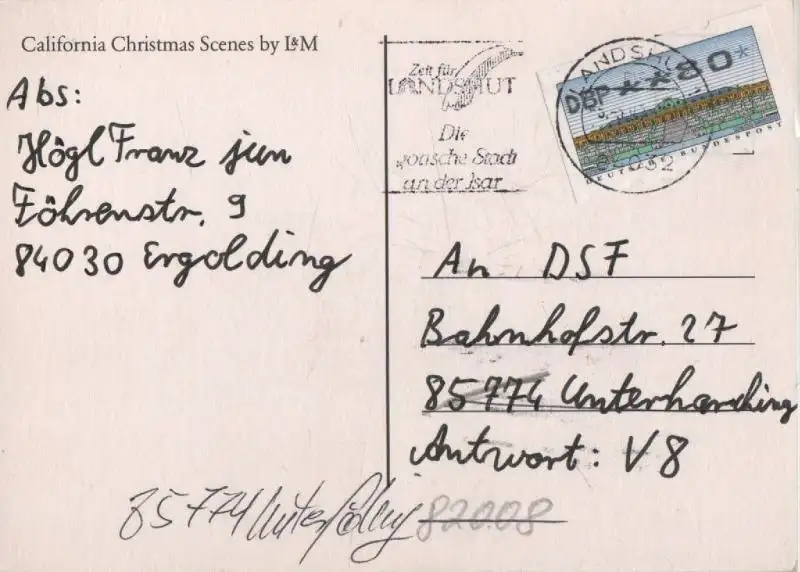 California Christmas Scenes by L&M
Abs:
Högl Franz jun
Föhrenstr. 9
84030 Ergolding
Zeit für
LANDSHUT
Die
gotische Stadt
an der Isar
LANDSHUT
DBP **80*
DEUTSCHE BUNDESPOST
An DSF
Bahnhofstr. 27
85774 Unterhaching
Antwort: V8
85774 Unterföhring
82008